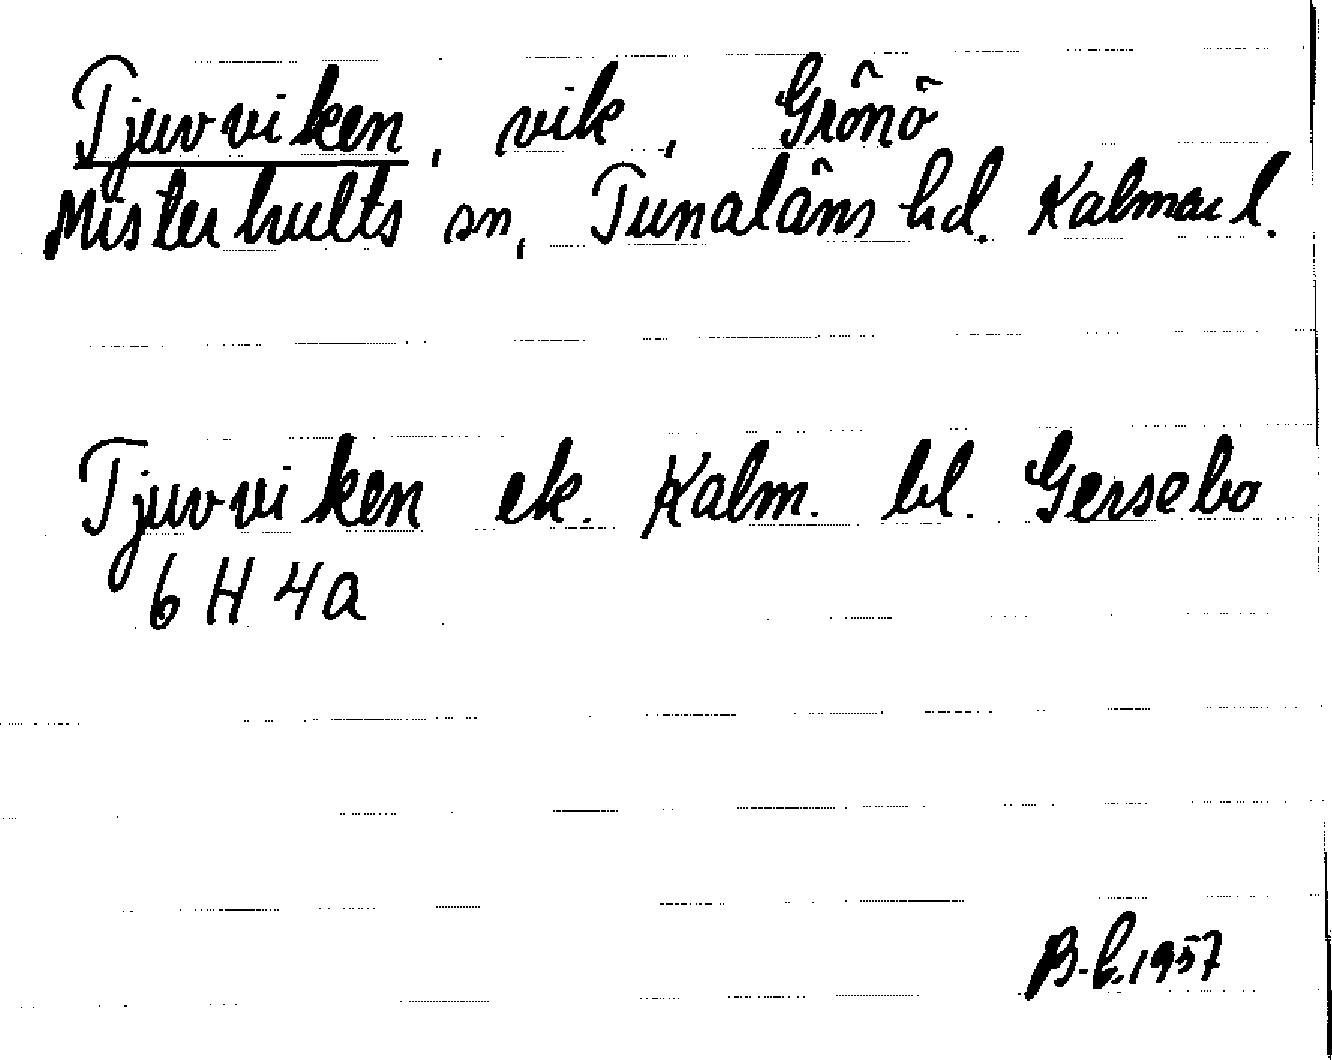 Tjuvviken, vik, Grönö
Misterhults sn, Tunaläns hd. Kalmar l.
Tjuvviken ek. Kalm. bl. Gersebo
6 H 4a
1957